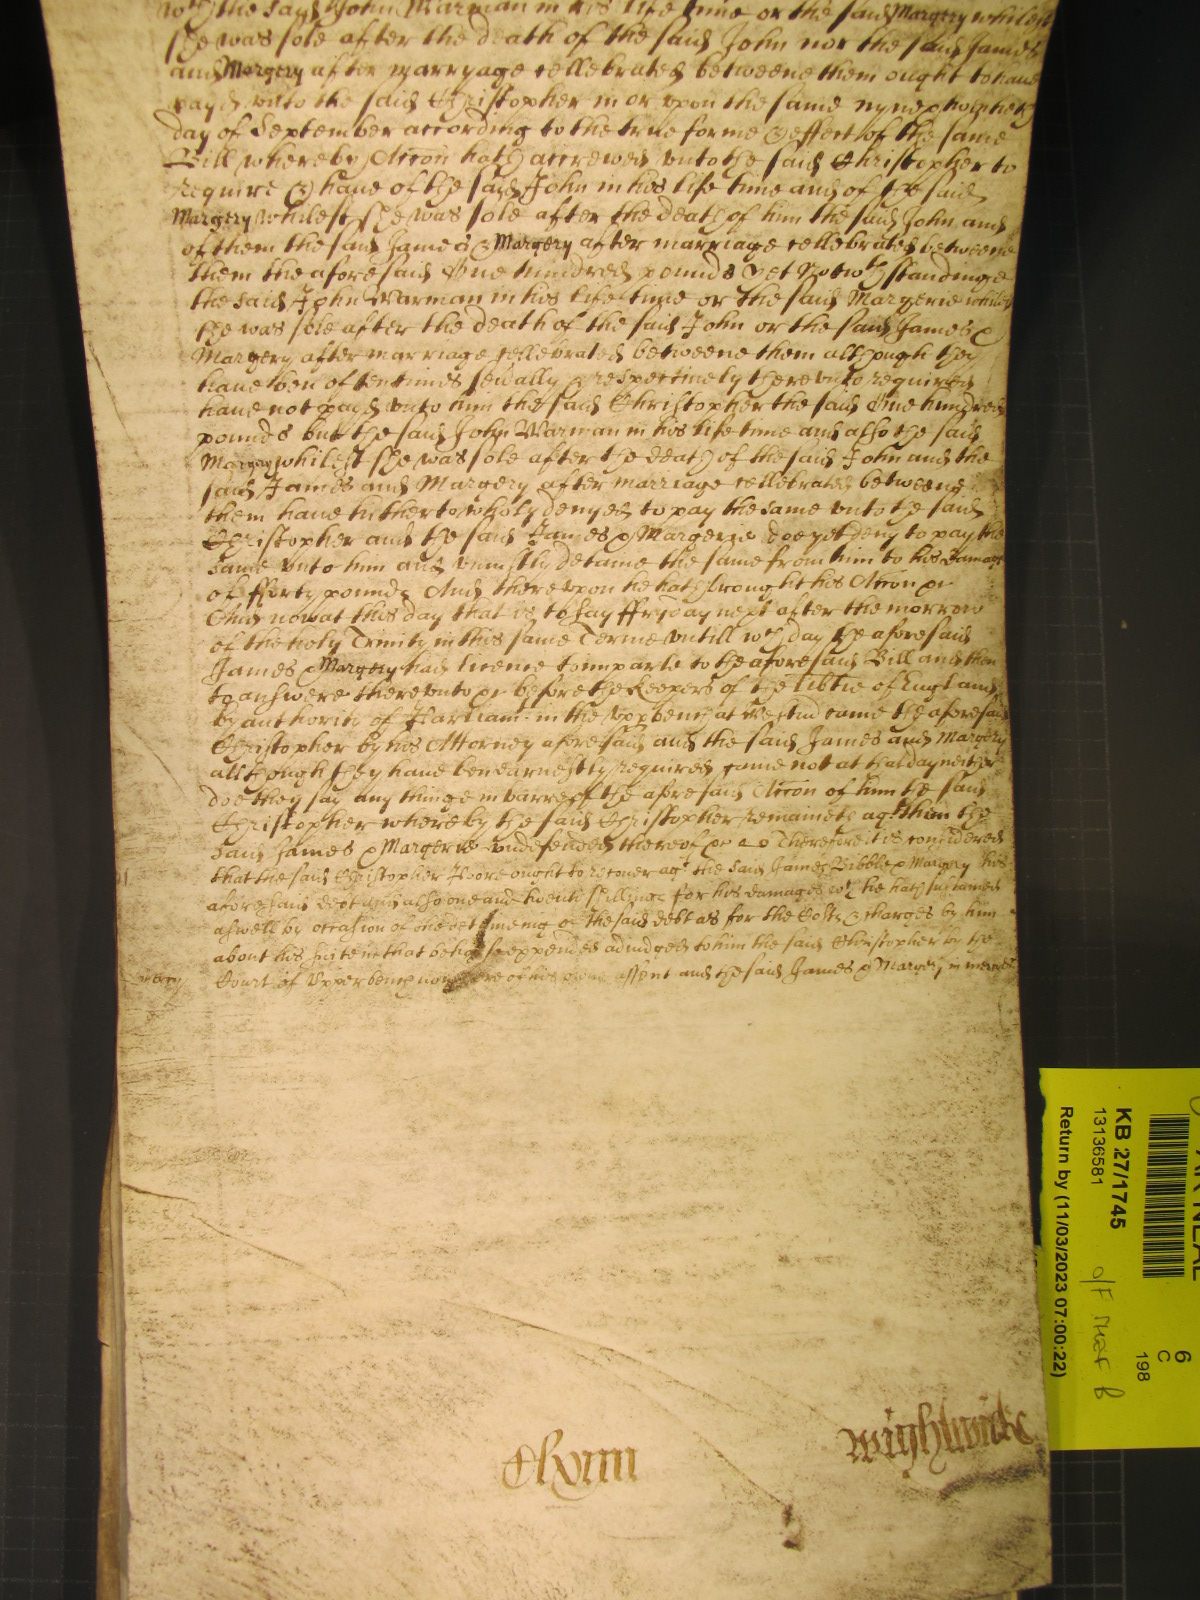 wch the said John Warman in his life time or the said Margery whilest
she was sole after the death of the said John nor the said James
and Margery after marryage cellebrated betweene them ought to haue
payd vnto the said Christopher in or vpon the same
day of September according to the true forme & effect of the same
Bill whereby Accon hath accrewed vnto the said Christopher to
require & haue of the said John in his life time and of the said
Margery whilest she was sole after the death of him the said John and
of them the said James & Margery after marriage cellebrated betweene
them the aforesaid One hundred pounds Yet Notwthstandinge
the said John Warman in his life time or the said Margerie whilest
she was sole after the death of the said John or the said James &
Margery after marriage cellebrated betweene them although they
haue ben oftentimes seu'ally & respectiuely therevnto required
haue not payd vnto him the said Christopher the said One hundred
pounds but the said John Warman in his life time and also the said
Margery whilest she was sole after the death of the said John and the
said James and Margery after marriage cellebrated betweene
them haue hitherto wholy denyed to pay the same vnto the said
Christopher and the said James & Margerie doe yet deny to pay the
same vnto him and vniustly detaine the same from him to his damage
of fforty pounds And therevpon he hath brought his Accon &c
And now at this day that is to say ffryday next after the morrow
of the holy Trinity in this same Terme vntill wch day the aforesaid
James & Margery had licence to imparle to the aforesaid Bill and then
to answere therevnto &c before the Keepers of the lib'tie of England
by authoritie of Parliamt in the vpp bench at Westm' came the aforesaid
Christopher by his Attorney aforesaid and the said James and Margery
allthough they haue ben earnestly required came not at that day neither
doe they say any thinge in barre of the aforesaid Accon of him the said
Christopher whereby the said Christopher remaineth agt them the
said James & Margerie vndefended thereof &c Therefore it is considered
that the said Christopher Hoore ought to recouer agt the said James Bibble & Margery his
aforesaid debt and also one and twenty shillings for his damages wch he hath sustained
aswell by occasion of the deteineing of the said debt as for the Costs & charges by him
about his suite in that behalfe expended adiudged to him the said Christopher by the
Court of Vpper bench now here of his owne assent and the said James & Margery in mercy
mercy
Clxviii
Wightwicke
KB 27/1745
13136581
Return by (11/03/2023 07:00:22)
6
C
198